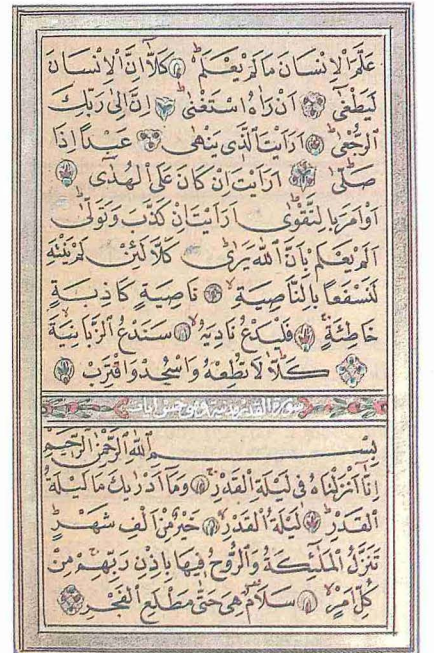 عَلَّمَ الْاِنْسَانَ مَا لَمْ يَعْلَمْ كَلَّا اِنَّ الْاِنْسَانَ
لَيَطْغٰى اَنْ رَاٰهُ اسْتَغْنٰى اِنَّ اِلٰى رَبِّكَ
الرُّجْعٰى اَرَاَيْتَ الَّذِى يَنْهٰى عَبْدًا اِذَا
صَلّٰى اَرَاَيْتَ اِنْ كَانَ عَلَى الْهُدٰى
اَوْ اَمَرَ بِالتَّقْوٰى اَرَاَيْتَ اِنْ كَذَّبَ وَتَوَلّٰى
اَلَمْ يَعْلَمْ بِاَنَّ اللّٰهَ يَرٰى كَلَّا لَئِنْ لَمْ يَنْتَهِ
لَنَسْفَعًا بِالنَّاصِيَةِ نَاصِيَةٍ كَاذِبَةٍ
خَاطِئَةٍ فَلْيَدْعُ نَادِيَهُ سَنَدْعُ الزَّبَانِيَةَ
كَلَّا لَا تُطِعْهُ وَاسْجُدْ وَاقْتَرِبْ
سورة القدر مدنية وهى خمس ايات
بِسْمِ اللّٰهِ الرَّحْمٰنِ الرَّحِيمِ
اِنَّا اَنْزَلْنَاهُ فِى لَيْلَةِ الْقَدْرِ وَمَا اَدْرٰيكَ مَا لَيْلَةُ
الْقَدْرِ لَيْلَةُ الْقَدْرِ خَيْرٌ مِنْ اَلْفِ شَهْرٍ
تَنَزَّلُ الْمَلٰئِكَةُ وَالرُّوحُ فِيهَا بِاِذْنِ رَبِّهِمْ مِنْ
كُلِّ اَمْرٍ سَلَامٌ هِىَ حَتّٰى مَطْلَعِ الْفَجْرِ